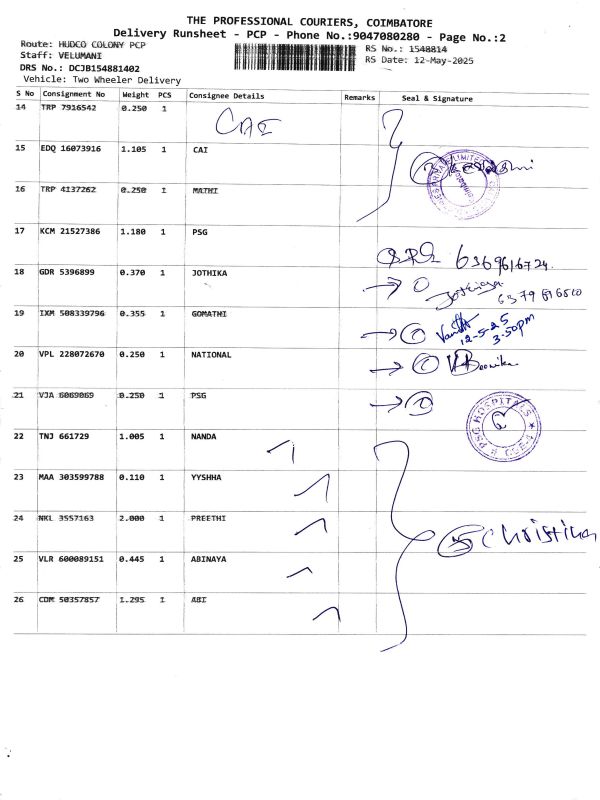 THE PROFESSIONAL COURIERS, COIMBATORE
Delivery Runsheet - PCP - Phone No.:9047080280 - Page No.:2
Route: HUDCO COLONY PCP
Staff: VELUMANI
DRS No.: DCJB154881402
Vehicle: Two Wheeler Delivery
RS No.: 1548814
RS Date: 12-May-2025
S No Consignment No Weight PCS Consignee Details Remarks Seal & Signature
14 TRP 7916542 0.250 1 CAI
15 EDQ 16073916 1.105 1 CAI
16 TRP 4137262 0.250 1 MATHI
17 KCM 21527386 1.180 1 PSG
6369616724
18 GDR 5396899 0.370 1 JOTHIKA
19 IXM 508339796 0.355 1 GOMATHI
12-5-25
3.50pm
20 VPL 228072670 0.250 1 NATIONAL
21 VJA 6069069 0.250 1 PSG
PSG HOSPITALS
22 TNJ 661729 1.005 1 NANDA
23 MAA 303599788 0.110 1 YYSHHA
24 NKL 3557163 2.000 1 PREETHI
5 Christina
25 VLR 600089151 0.445 1 ABINAYA
26 CDM 50357857 1.295 1 ABI